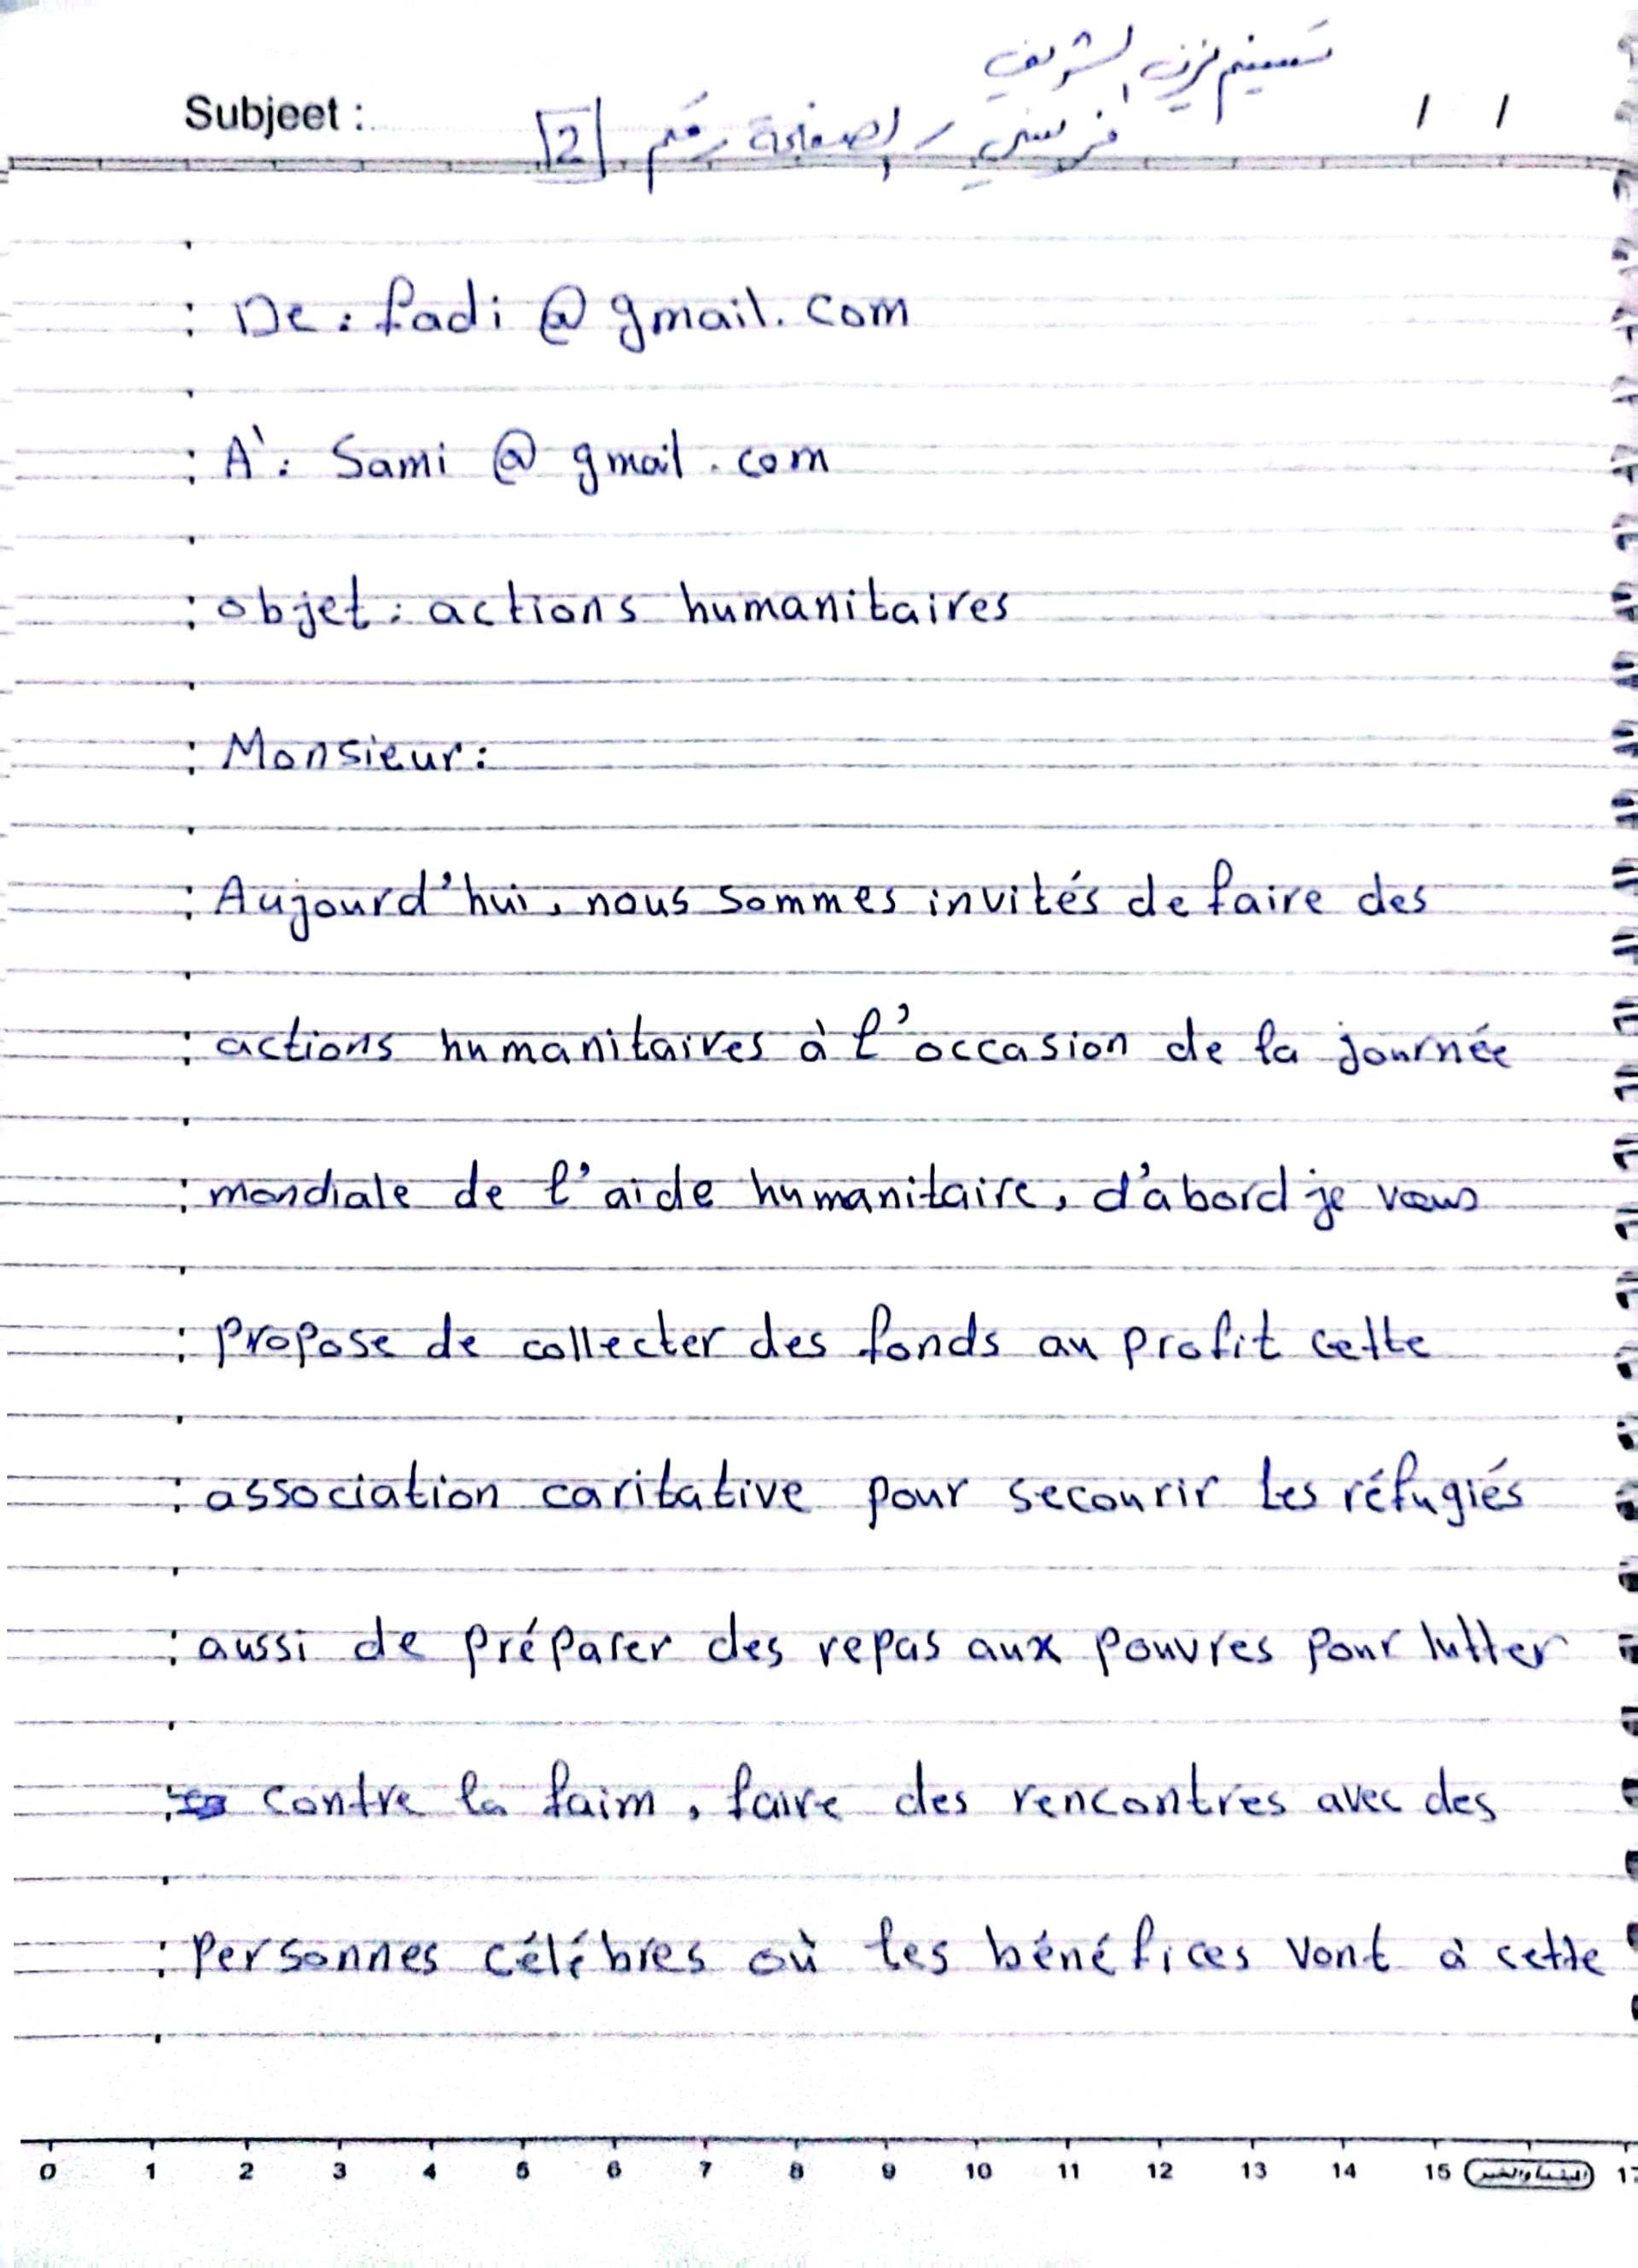 تسنيم نزيه الشريف
Subjeet :
فرنسي / الصفحة رقم 2
/ /
De : fadi @ gmail. com
À : Sami @ gmail . com
objet : actions humanitaires
Monsieur :
Aujourd'hui, nous sommes invités de faire des
actions humanitaires à l'occasion de la journée
mondiale de l'aide humanitaire, d'abord je vous
propose de collecter des fonds au profit cette
association caritative pour secourir les réfugiés
aussi de préparer des repas aux pouvres pour lutter
contre la faim, faire des rencontres avec des
personnes célébres où les bénéfices vont à cette
0 1 2 3 4 5 6 7 8 9 10 11 12 13 14 15 17